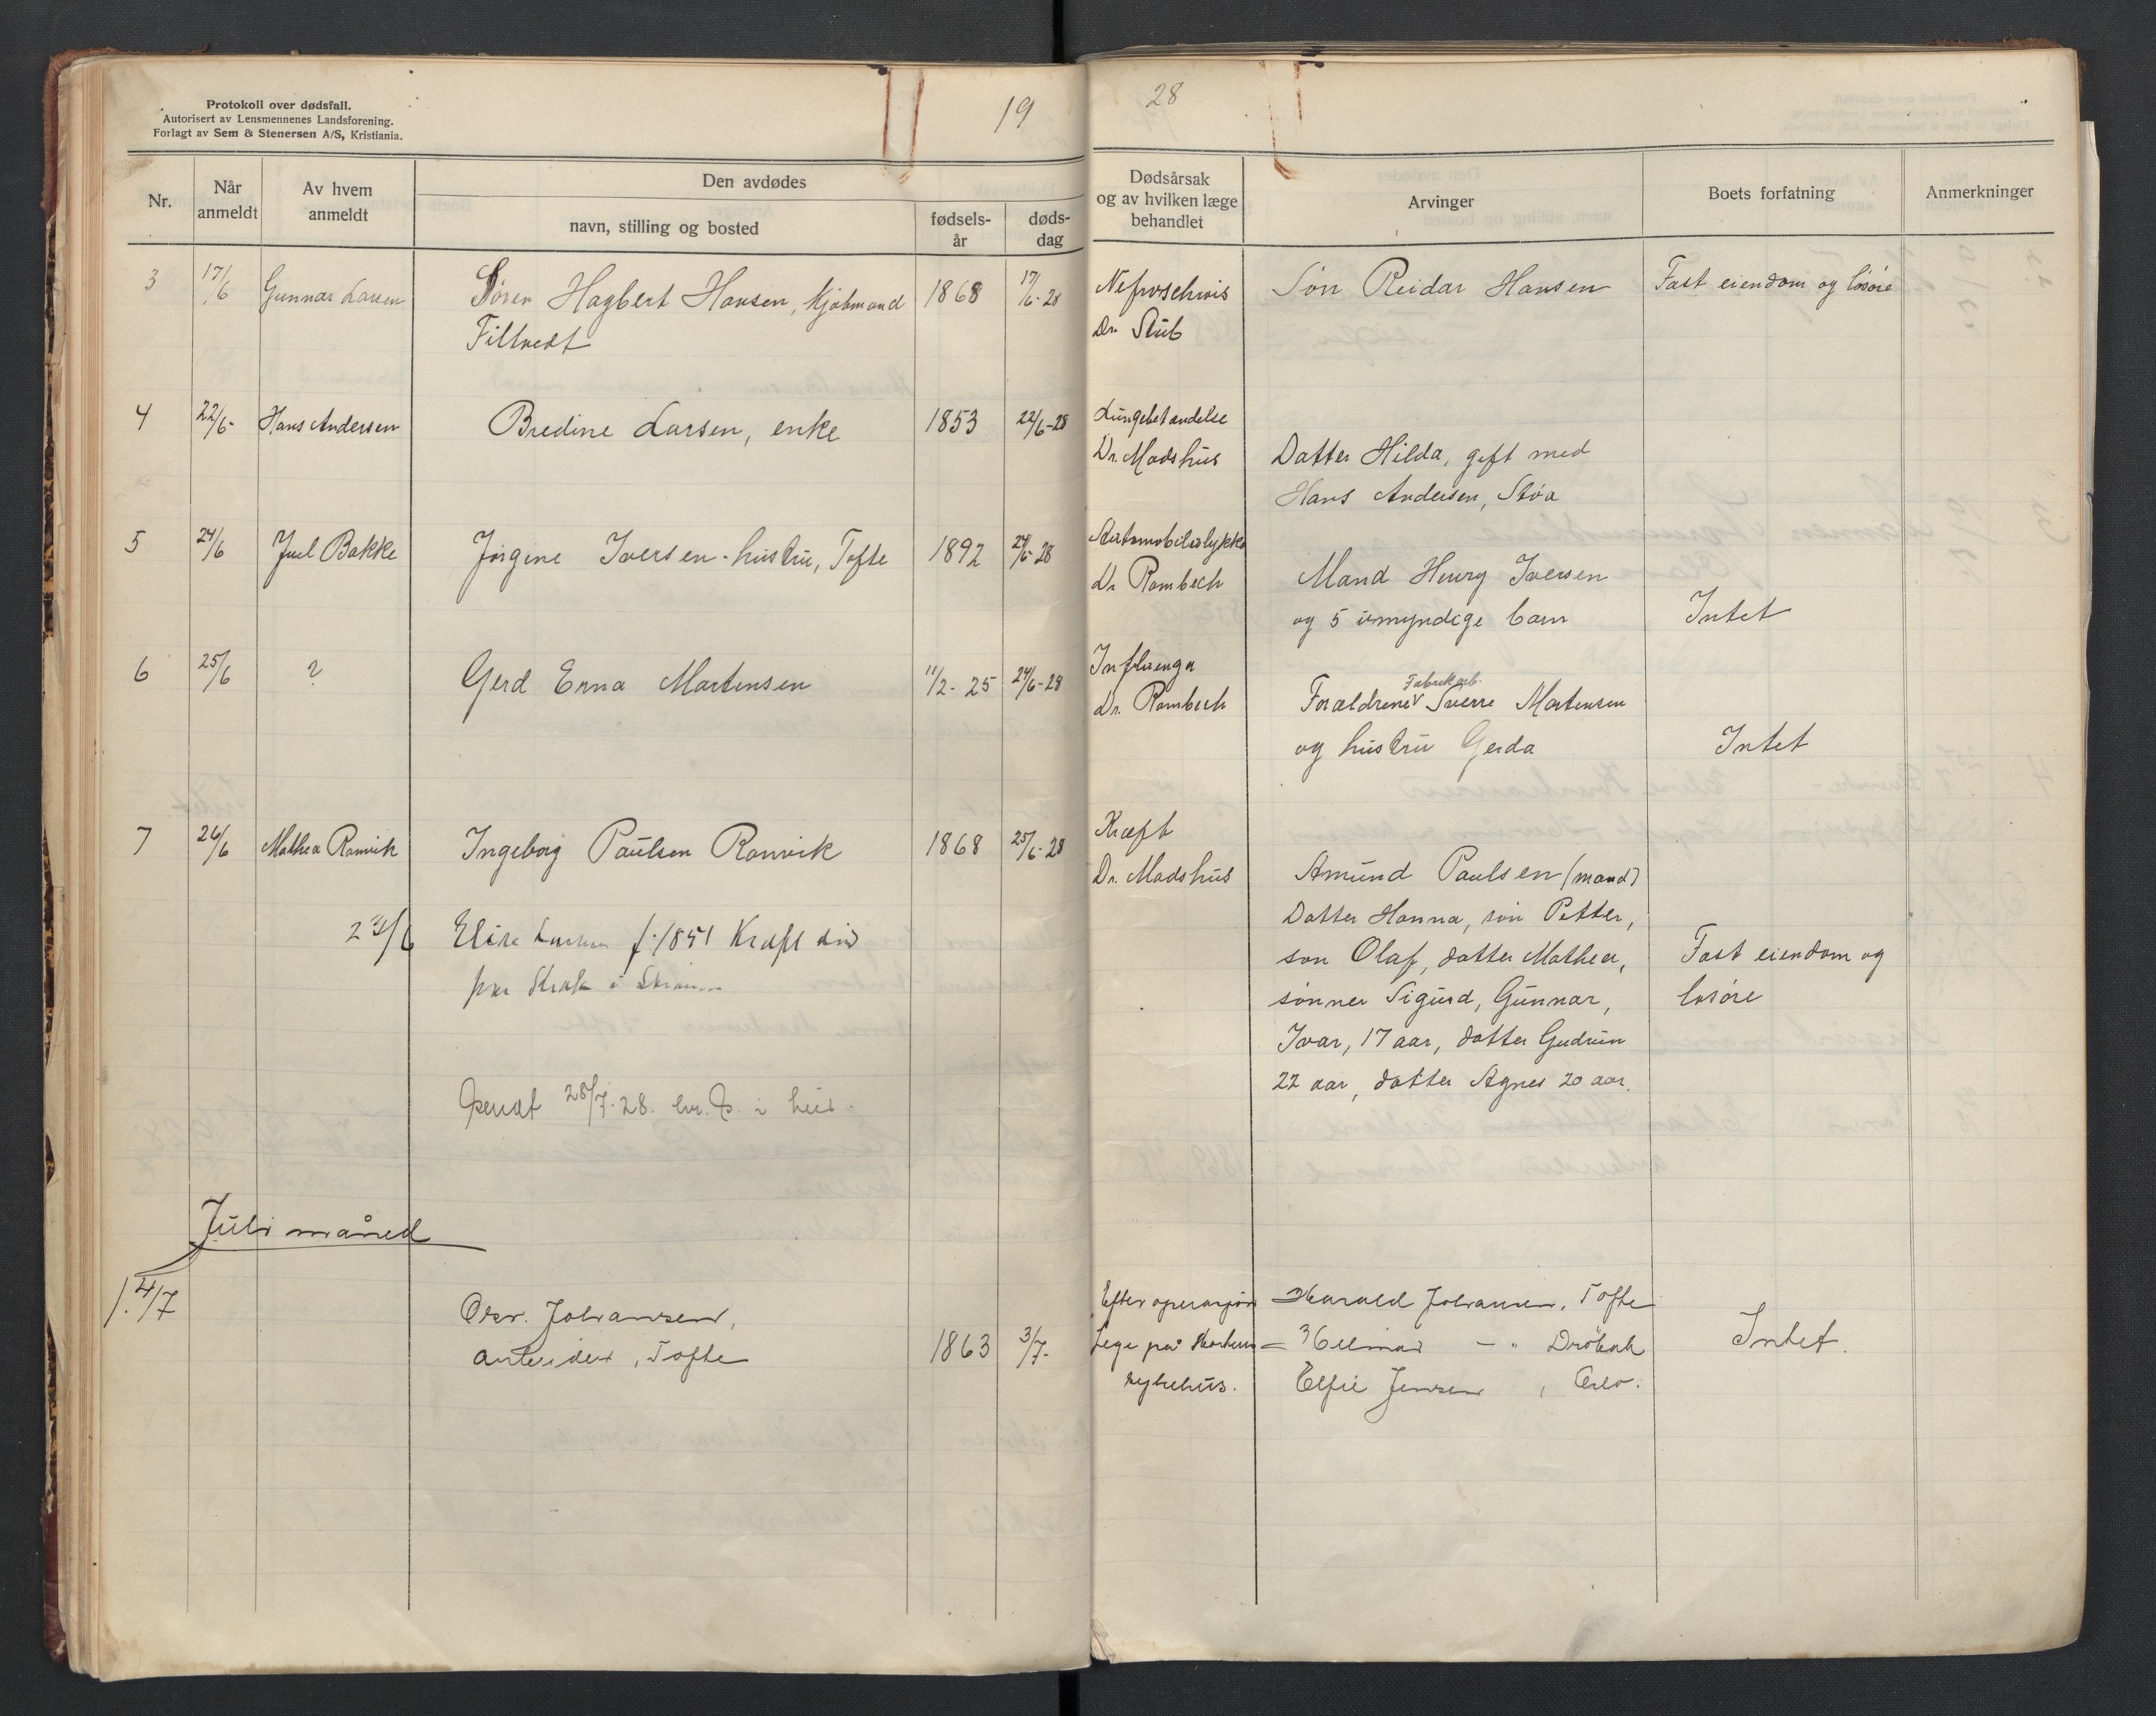 Protokoll over dødsfall.
Autorisert av Lensmennenes Landsforening.
Forlagt av Sem & Stenersen A/S, Kristiania.
19 28
Nr.
Når anmeldt
Av hvem anmeldt
Den avdødes
navn, stilling og bosted
fødsels-år
døds-dag
Dødsårsak og av hvilken læge behandlet
Arvinger
Boets forfatning
Anmerkninger
3 17/6 Gunnar Larsen Søren Hagbert Hansen, Kjøbmand 1868 17/6-28
Filtvedt
Dr. Stub
Søn Reidar Hansen Fast eiendom og løsøre
4 22/6- Hans Andersen Bredine Larsen, enke 1853 22/6-28
Lungebetændelse
Dr. Madshus
Datter Hilda, gift med
Hans Andersen, Støa
5 24/6 Juel Bakke Jørgine Iversen-hustru, Tofte 1892 24/6-28
Automobilulykke
Dr Rambech
Mand Henry Iversen
og 5 umyndige barn Intet
6 25/6 ? Gerd Erna Martensen 11/2-25 24/6-28
Influenza
Dr. Rambech
Fabrikarb.
Forældrene Sverre Martensen
og hustru Gerda Intet
7 26/6 Mathea Ramvik Ingeborg Paulsen Ramvik 1868 25/6-28
Kræft
Dr. Madshus
Amund Paulsen (mand)
Datter Hanna, søn Petter,
søn Olaf, datter Mathea, Fast eiendom og
sønner Sigurd, Gunnar, løsøre
Ivar, 17 aar, datter Gudrun
22 aar, datter Agnes 20 aar.
Elise Larsen f. 1851 Kræft
28/7.28. i hus.
Juli måned
1. 4/7
Osv. Johansen,
arbeider, Tofte 1863 3/7-
Efter operasjon
Lege på
sykehus.
Harald Johansen, Tofte
Hilmar - " Drøbak Intet.
Elfie Jensen, Oslo.